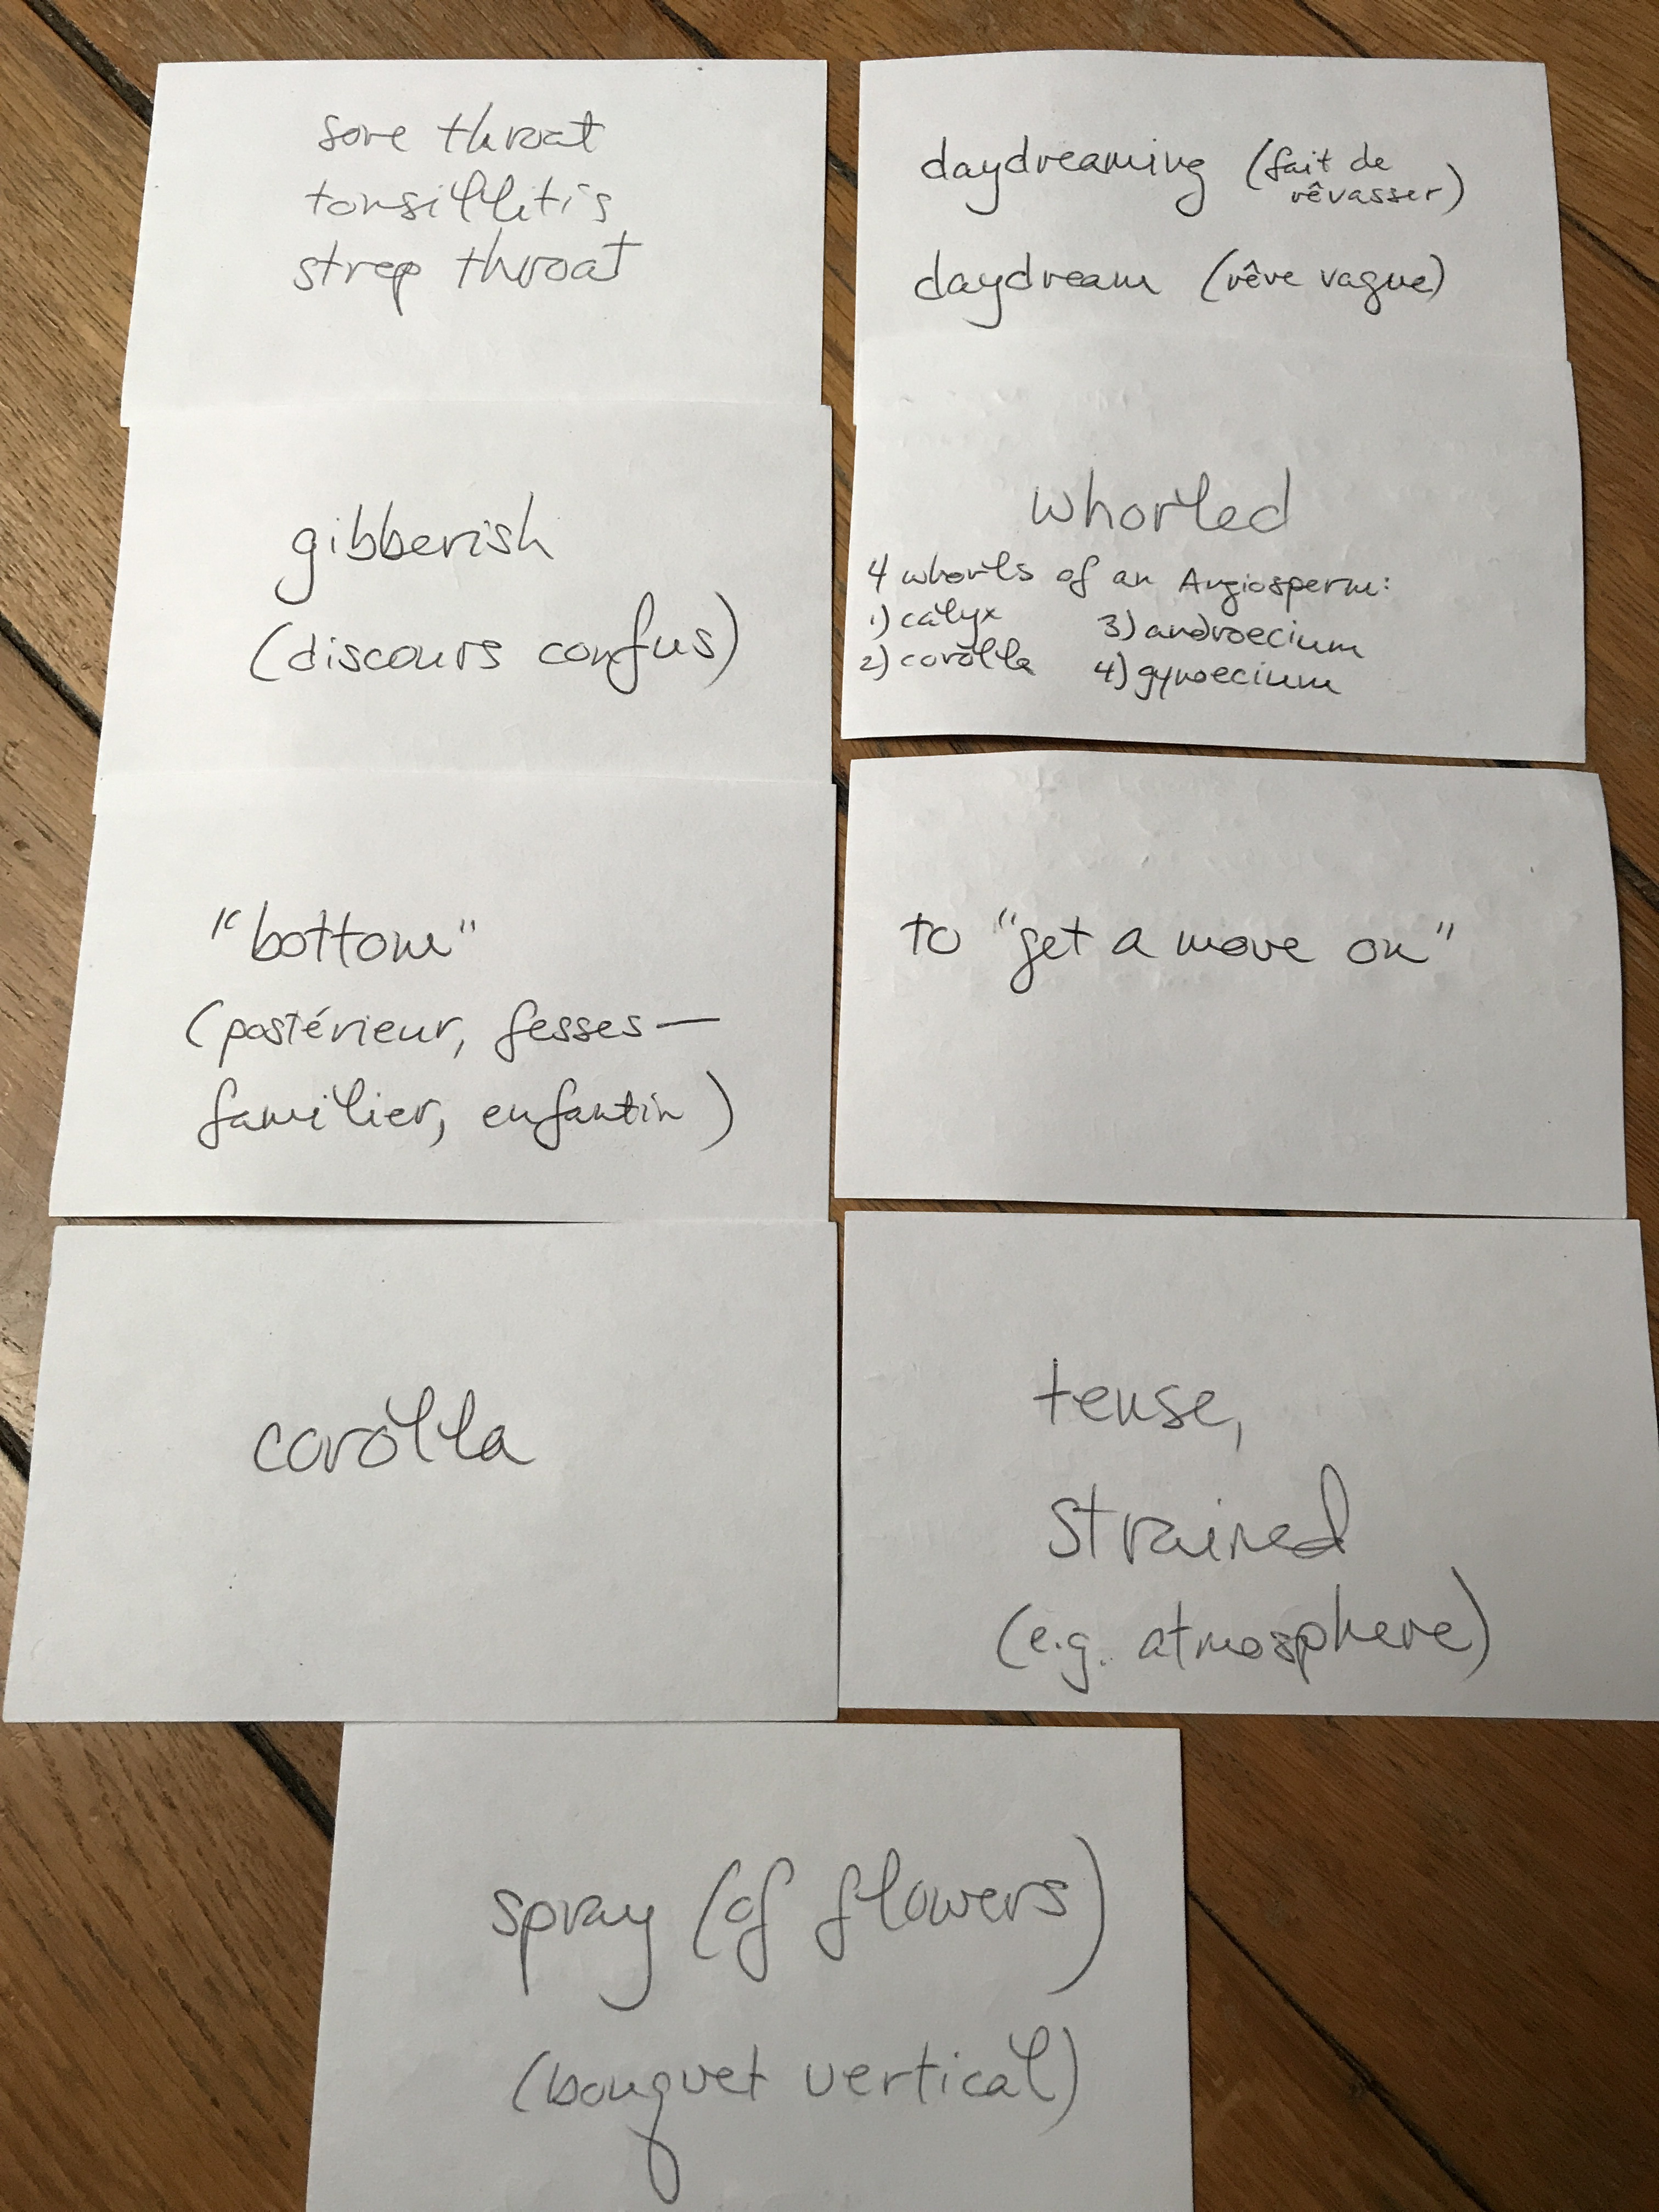 sore throat
tonsillitis
strep throat
daydreaming (fait de
rêvasser)
daydream (rêve vague)
gibberish
(discours confus)
whorled
4 whorls of an Angiosperm:
1) calyx 3) androecium
2) corolla 4) gynoecium
"bottom"
(postérieur, fesses—
familier, enfantin)
to "get a move on"
corolla
tense,
strained
(e.g. atmosphere)
spray (of flowers)
(bouquet vertical)